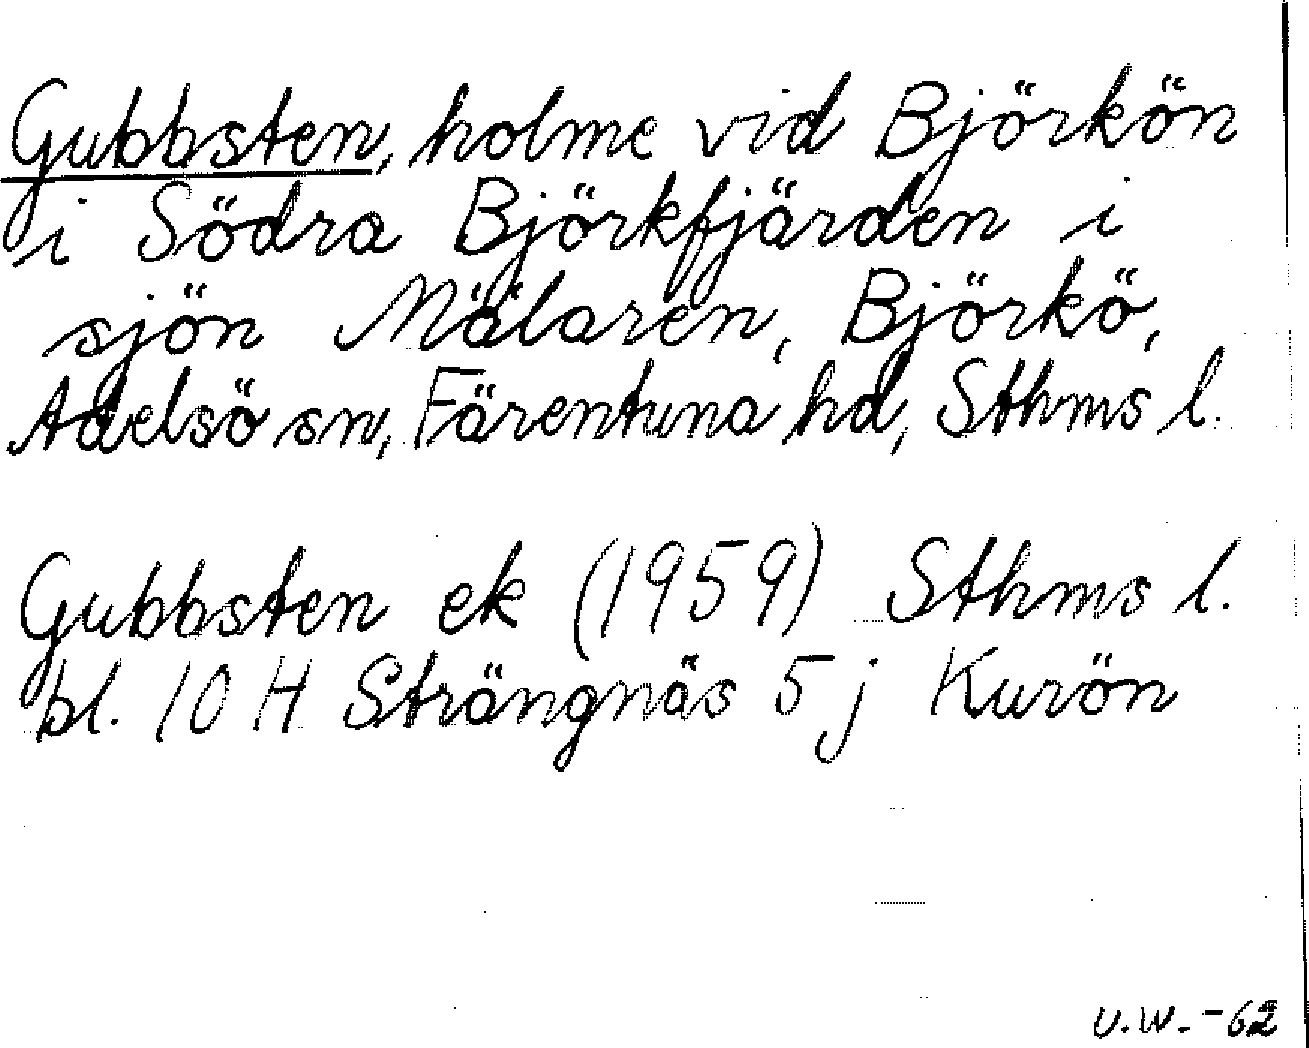 Gubbsten, holme vid Björkön
i Södra Björkfjärden i
sjön Mälaren, Björkö,
Adelsö sn, Färentuna hd, Sthms l.
Gubbsten ek (1959) Sthms l.
bl. 10 H Strängnäs 5 j Kurön
U.W. -62